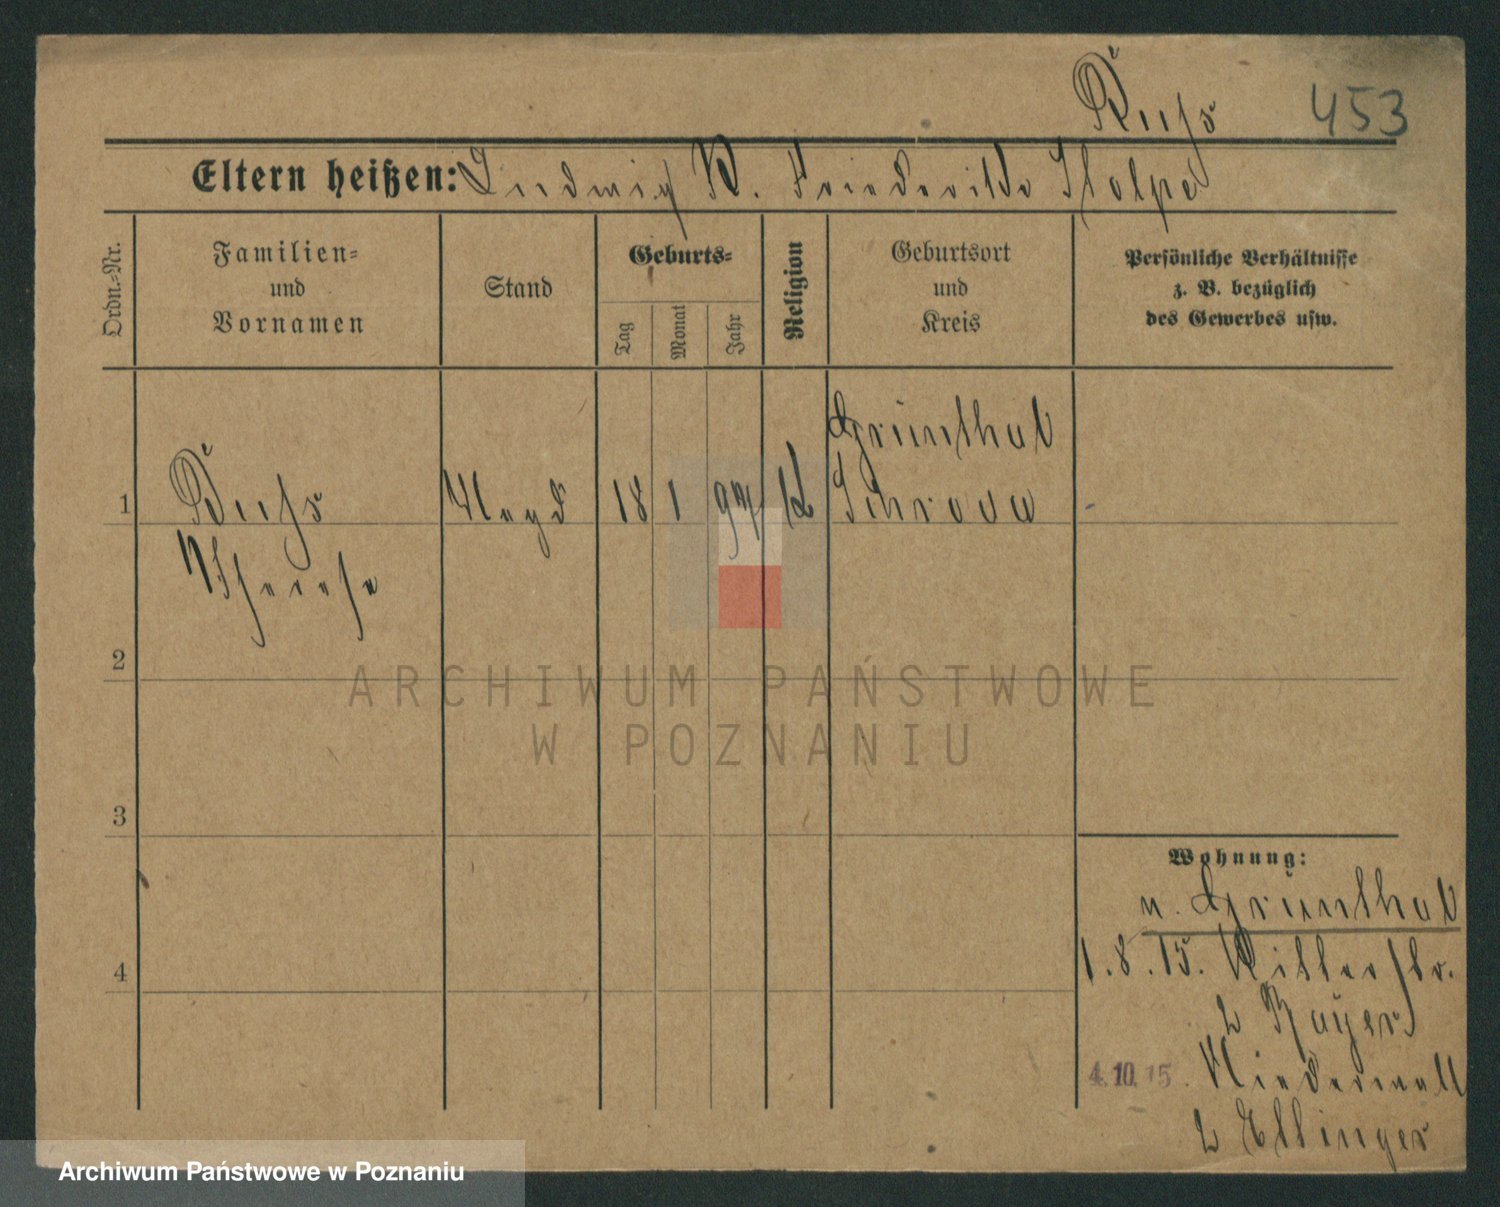 Rufs 453
Eltern heißen: Ludwig R. Friederike Stolpe
Ordn.-Nr.
Familien-
und
Vornamen
Stand
Geburts-
Tag
Monat
Jahr
Religion
Geburtsort
und
Kreis
Persönliche Verhältnisse
z. B. bezüglich
des Gewerbes usw.
Grünthal
1 Rufs Magd 18 1 97 K Schroda
Therese
2
3
4
Wohnung:
n. Grünthal
1.8.15. Ritterstr.
2 Bayer
4.10.15. Niederwall
2 Ellinger
ARCHIWUM PAŃSTWOWE
W POZNANIU
Archiwum Państwowe w Poznaniu